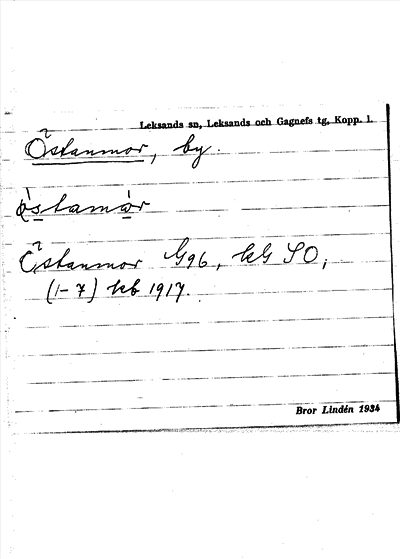 Leksands sn, Leksands och Gagnefs tg, Kopp. l.
Östanmor, by.
Östanmor G96, kG SO,
(1-7) kb 1917.
Bror Lindén 1934